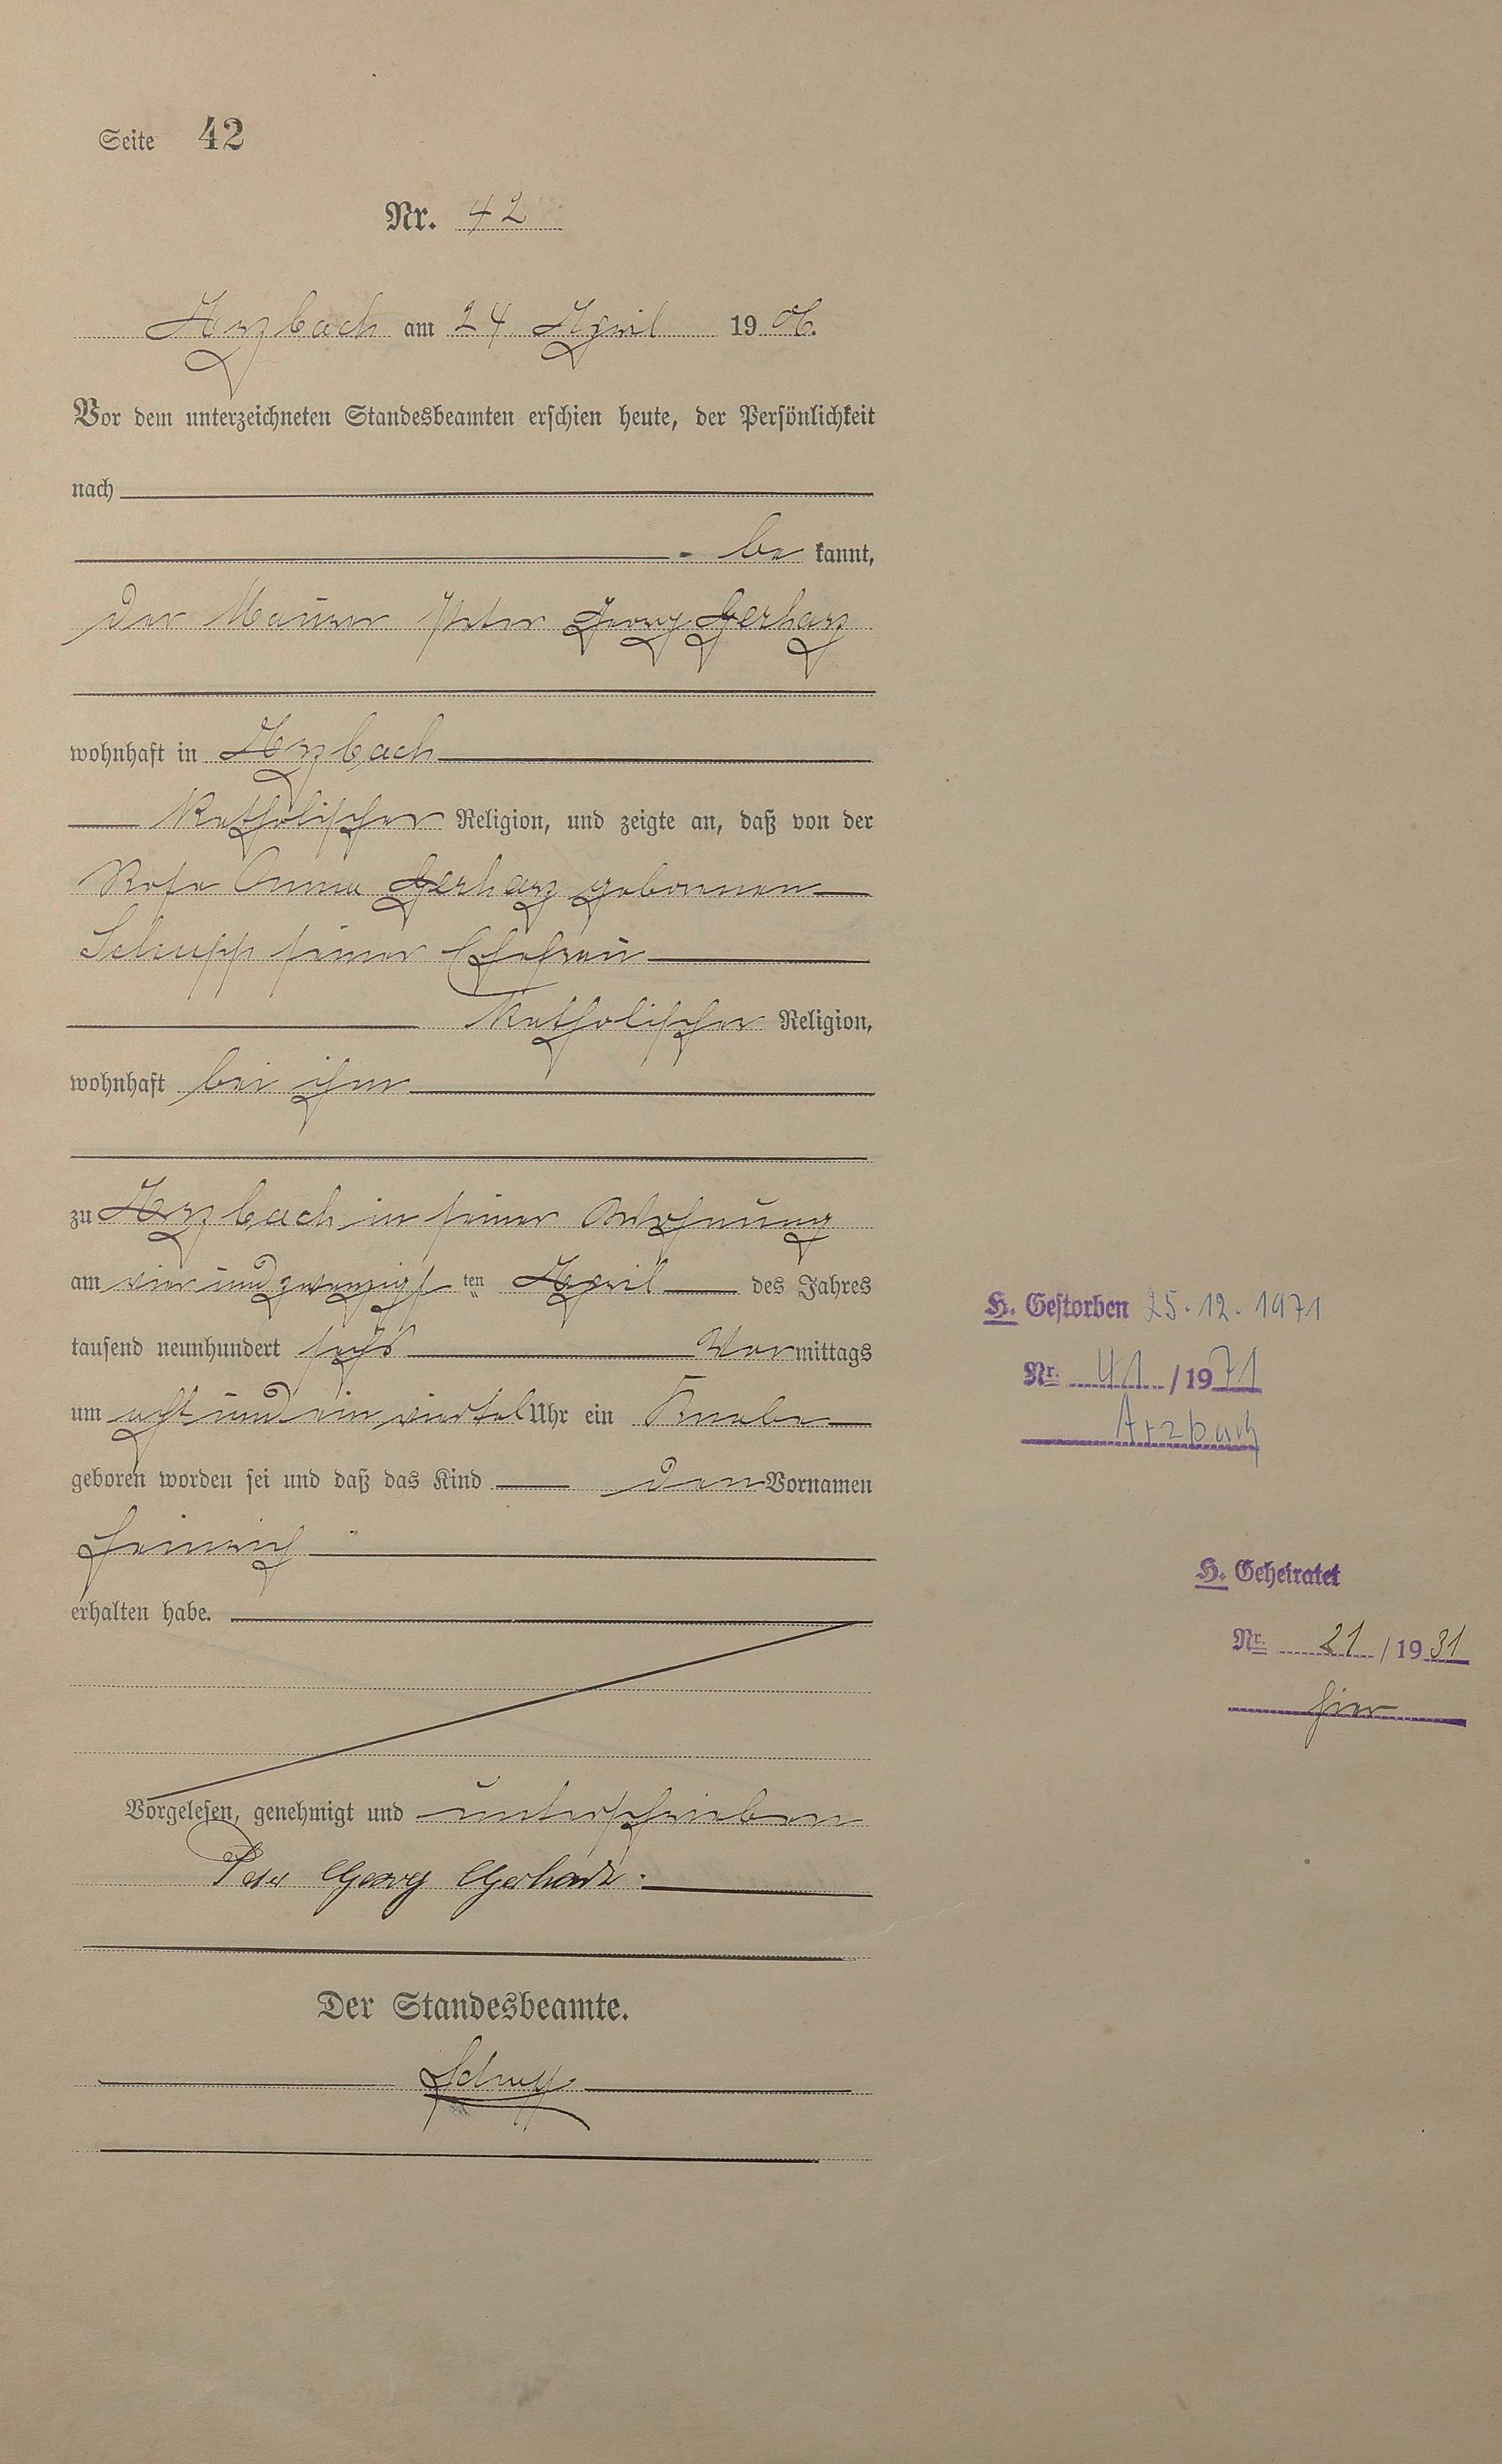 Seite 42
Nr. 42
Arzbach am 24. April 1906.
Vor dem unterzeichneten Standesbeamten erschien heute, der Persönlichkeit
nach
be kannt,
der Maurer Peter Georg Gerharz
wohnhaft in Arzbach
Katholischer Religion, und zeigte an, daß von der
Rosa Anna Gerharz geborenen
Schupp seiner Ehefrau
Katholischer Religion,
wohnhaft bei ihm
zu Arzbach in seiner Wohnung
am vier und zwanzigsten April des Jahres
tausend neunhundert sechs Vormittags
um acht und ein viertel Uhr ein Knabe
geboren worden sei und daß das Kind den Vornamen
Heinrich
erhalten habe.
Vorgelesen, genehmigt und unterschrieben
Peter Georg Gerharz.
Der Standesbeamte.
Schupp
H. Gestorben 25.12.1971
Nr. 41/1971
Arzbach
H. Geheiratet
Nr. 21/1931
hier